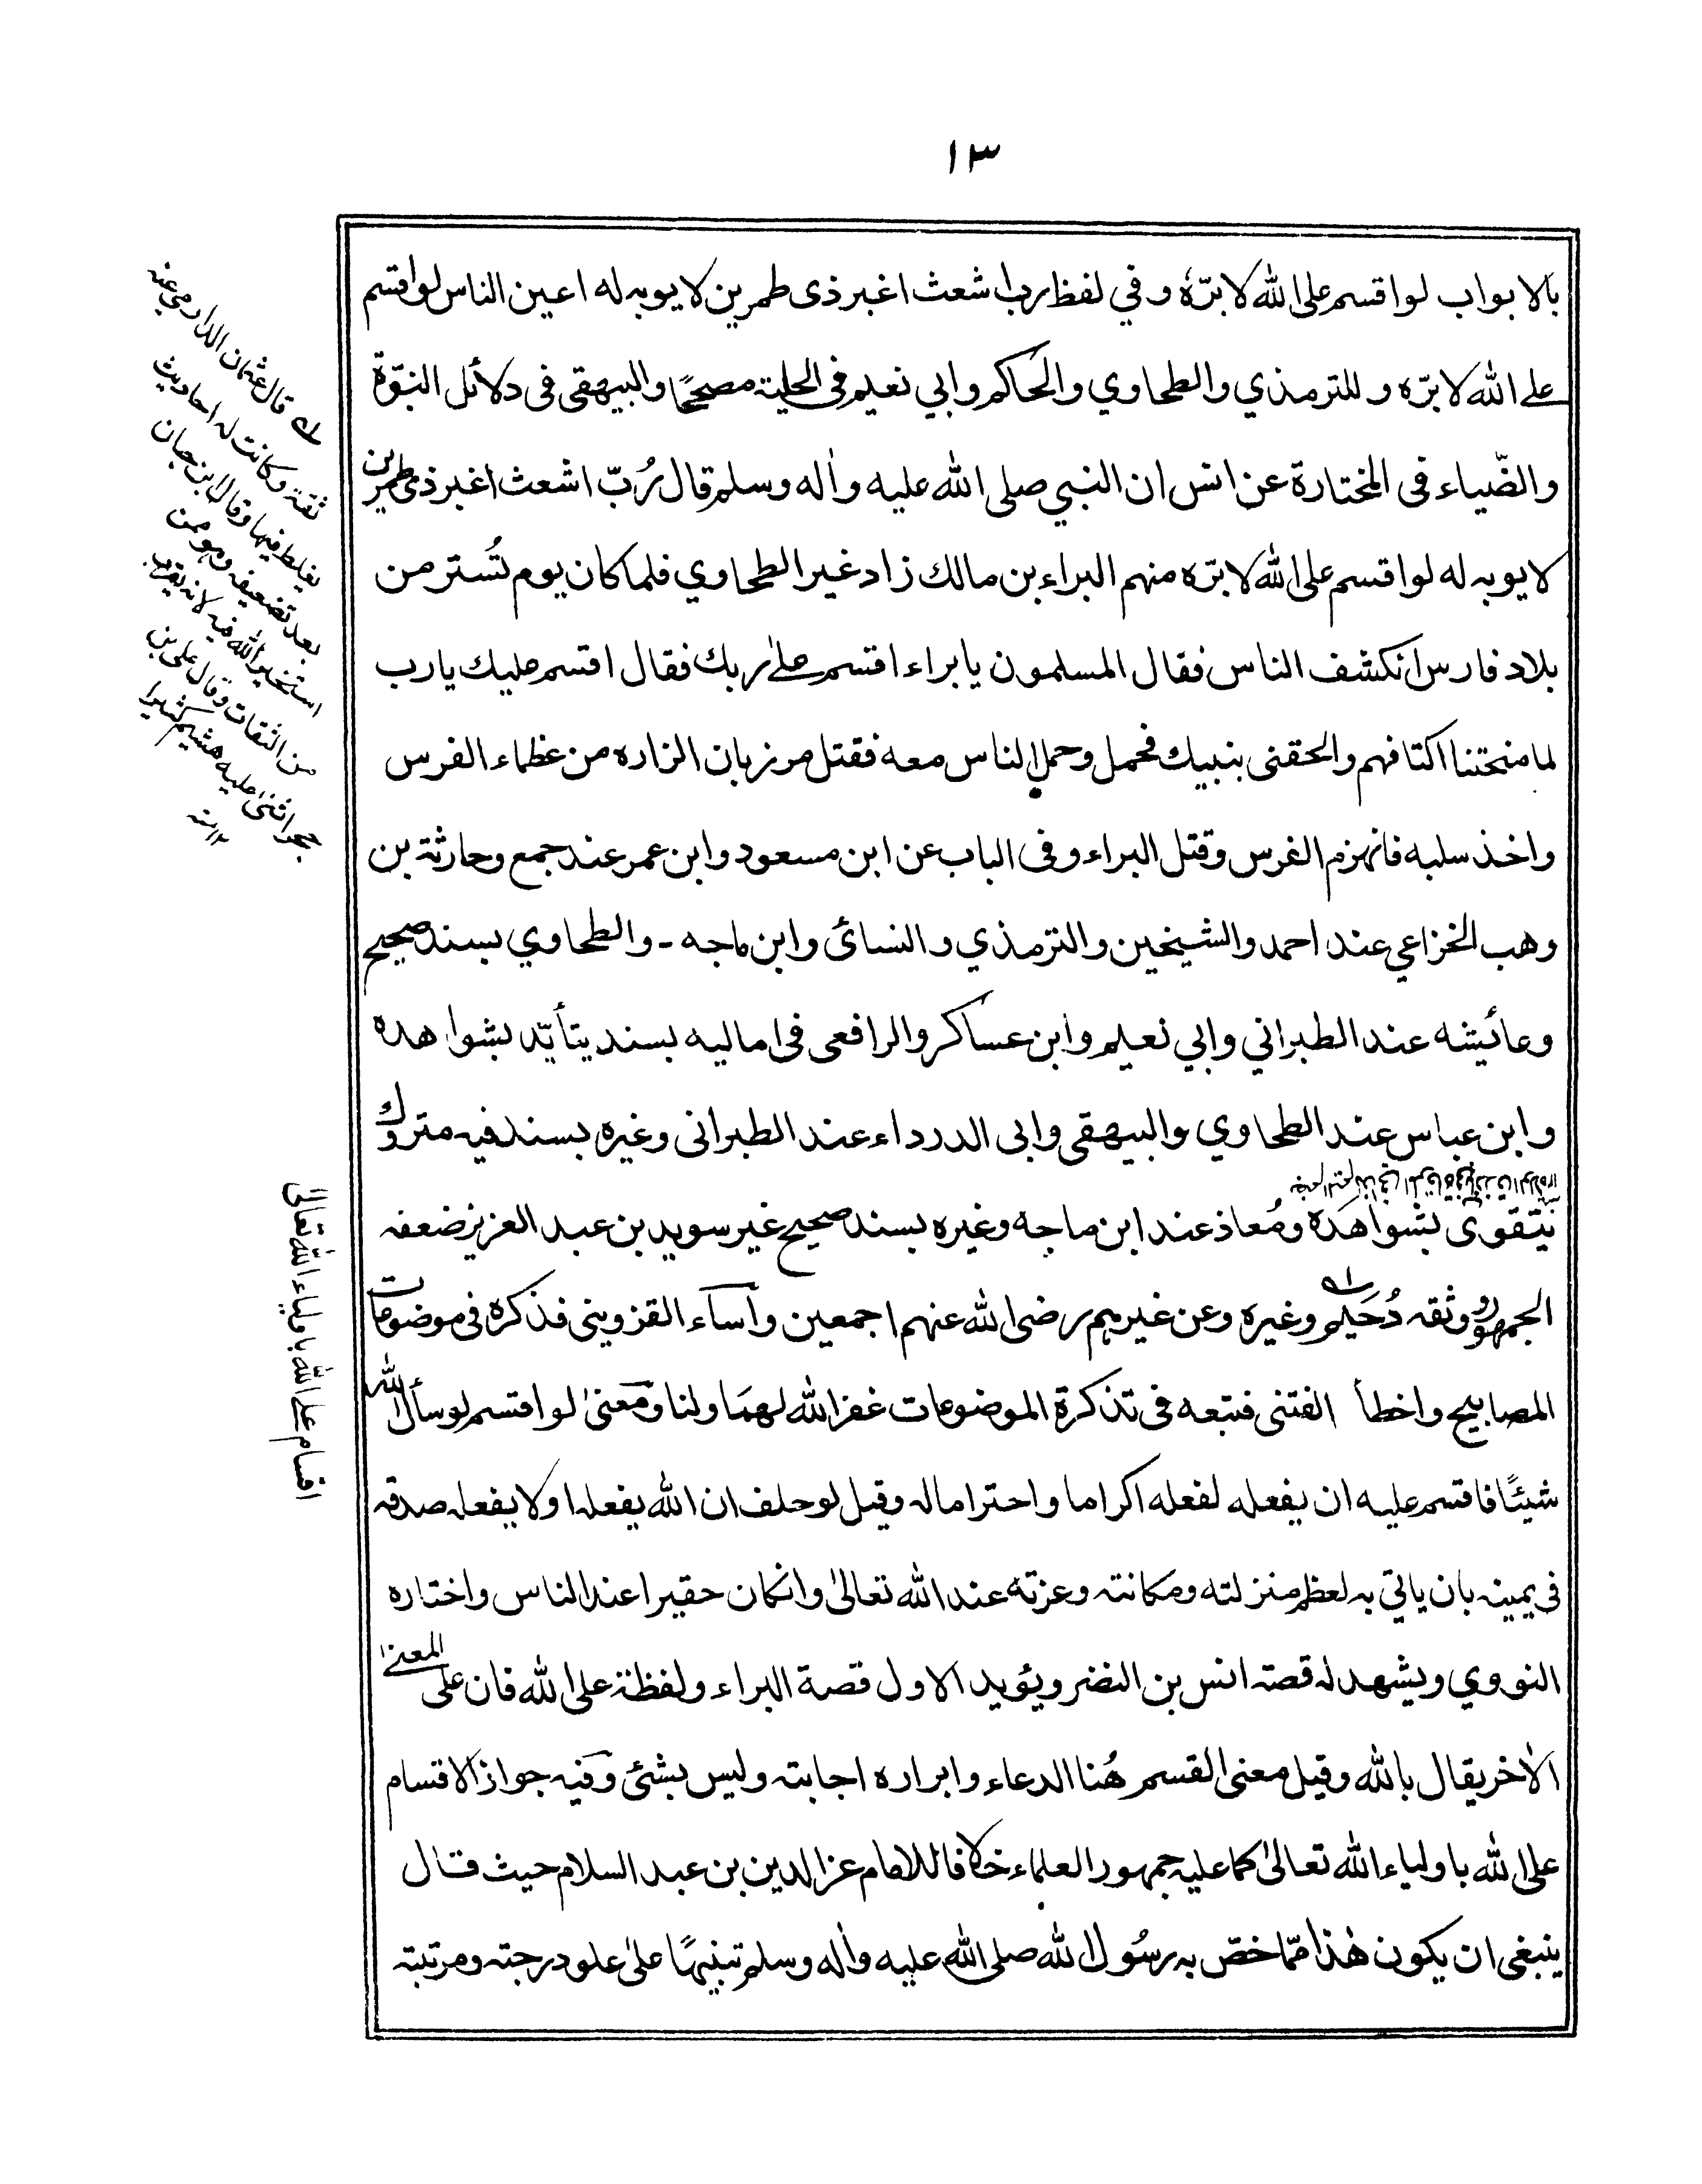 ١٣
بالابواب لواقسم على الله لابرّه وفي لفظ رب اشعث اغبر ذى طمرين لا يوبه له اعين الناس لواقسم
على الله لابرّه وللترمذي والطحاوي والحاكم وابي نعيم فى الحلية مصححًا والبيهقى فى دلائل النبوّة
والضّياء فى المختارة عن انس ان النبي صلى الله عليه واٰله وسلم قال رُبّ اشعث اغبر ذى طمرين
لا يوبه له لواقسم على الله لابرّه منهم البراء بن مالك زاد غير الطحاوي فلما كان يوم تُستر من
بلاد فارس انكشف الناس فقال المسلمون يا براء اقسم علىٰ ربك فقال اقسم عليك يارب
لما منحتنا اكتافهم والحقنى بنبيك فحمل وحمل الناس معه فقتل مرزبان الزاره من عظماء الفرس
واخذ سلبه فانهزم الفرس وقتل البراء وفى الباب عن ابن مسعود وابن عمر عند جمع وحارثة بن
وهب الخزاعي عند احمد والشيخين والترمذي والنسائ وابن ماجه - والطحاوي بسند صحيح
وعائيشه عند الطبراني وابي نعيم وابن عساكر والرافعى فى اماليه بسند يتأيّد بشواهده
وابن عباس عند الطحاوي والبيهقى وابى الدرداء عند الطبرانى وغيره بسند فيه متروك
يتقوى بشواهده ومُعاذ عند ابن ماجه وغيره بسند صحيح غير سويد بن عبد العزيز ضعفه
الجمهور ووثقه دُحَيم وغيره وعن غيرهم رضى الله عنهم اجمعين وأساء القزوينى فذكره فى موضوعات
المصابيح واخطأ الفتنى فتبعه فى تذكرة الموضوعات غفر الله لهما ولنا ومعنىٰ لواقسم لوسأل الله
شيئًا فاقسم عليه ان يفعله لفعله اكراما واحتراما له وقيل لوحلف ان الله يفعله او لا يفعله صدقه
فى يمينه بان ياتي به لعظم منزلته ومكانته وعزته عند الله تعالىٰ وانكان حقيرا عند الناس واختاره
النووي ويشهد له قصة انس بن النضر ويؤيد الاول قصة البراء ولفظة على الله فان على المعنىٰ
الاٰخر يقال بالله وقيل معنى القسم هُنا الدعاء وابراره اجابته وليس بشئ وفيه جواز الاقسام
على الله باولياء الله تعالىٰ كما عليه جمهور العلماء خلافا للامام عز الدين بن عبد السلام حيث قال
ينبغى ان يكون هٰذا مّما خصّ به رسُول الله صلى الله عليه واٰله وسلم تنبيهًا علىٰ علو درجته ومرتبته
قال عثمان الدارمي عنه
ثقة وكانت له احاديث
يغلط فيها وقال ابن حبان
بعد تضعيفه وهو ممن
استخير الله فيه لانه يقرب
من الثقات وقال على بن
حجر اثنىٰ عليه هشيم كثيرا
١٢منه
اقسام على الله باولياء الله تعالىٰ